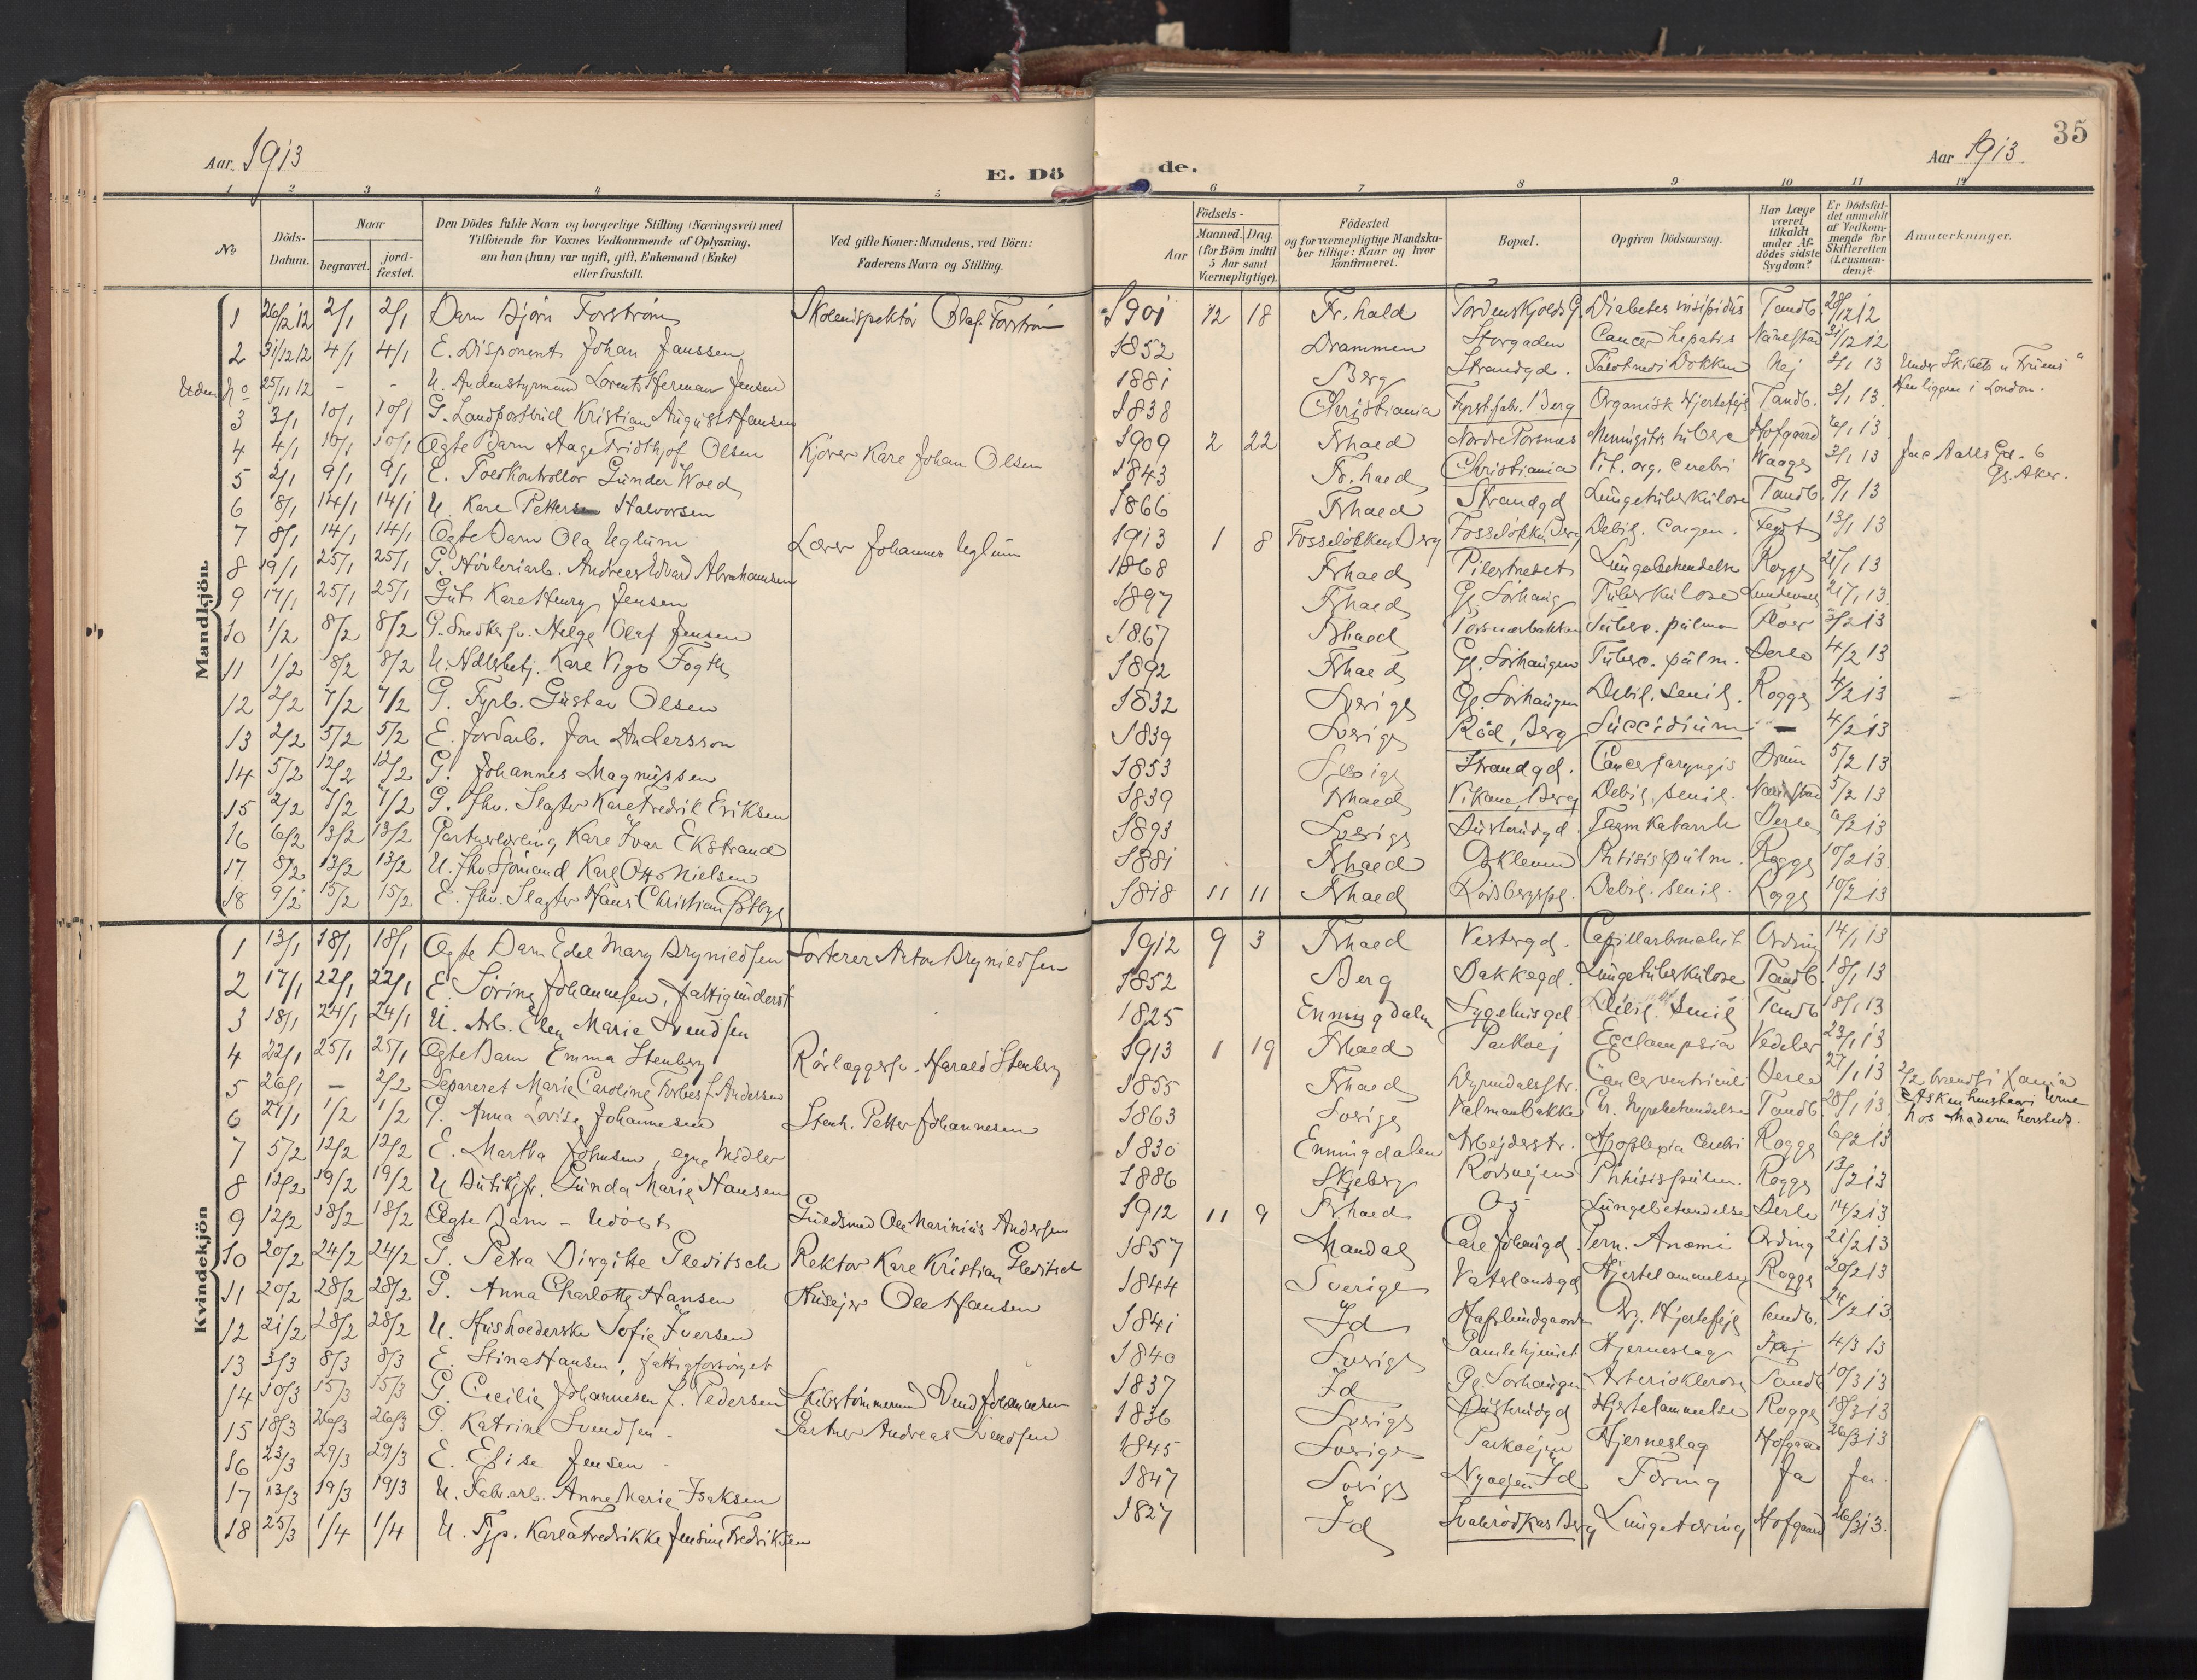 35
Aar 1913
E. Dö
de.
Aar 1913
1 2 3 4 5 6 7 8 9 10 11 12
No
Döds-Datum.
Naar
begravet. jord-fæstet.
Den Dödes fulde Navn og borgerlige Stilling (Næringsvei) med
Tilföiende for Voxnes Vedkommende af Oplysning,
om han (hun) var ugift, gift, Enkemand (Enke)
eller fraskilt.
Ved gifte Koner: Mandens, ved Börn:
Faderens Navn og Stilling.
Födsels-
Aar Maaned. Dag.
(for Börn indtil
5 Aar samt
Værnepligtige).
Födested
og for værnepligtige Mandska-
ber tillige: Naar og hvor
konfirmeret.
Bopæl.
Opgiven Dödsaarsag.
Har Læge
været
tilkaldt
under Af-
dödes sidste
Sygdom?
Er Dödsfal-
det anmeldt
af Vedkom-
mende for
Skifteretten
(Lensman-
den)?
Anmærkninger.
Mandkjön
1 26/12 12 2/1 2/1 Barn Bjørn Forstrøm Skoleinspektør Olaf Forstrøm 1901 12 18 Fr.hald Tordenskjolds G. Diabetes insipidus Tandb. 28/12 12
2 31/12 12 4/1 4/1 E. Disponent Johan Janssen 1852 Drammen Storgaden Cancer hepatis 31/12 12
Uden No 25/11 12 - - U. Andenstyrmand Lorents Herman Jensen 1881 Berg Strandgd. Faldt ned i Dokken Nej 2/1 13 Under Skibets
Henligger i London.
3 3/1 10/1 10/1 G. Landpostbud Kristian August Hansen 1838 Christiania Berg Organisk Hjertefejl Tandb. 3/1 13.
4 4/1 10/1 10/1 Ægte Barn Aage Fridthjof Olsen Kjører Karl Johan Olsen 1909 2 22 Frhald Nordre Torsnæs Meningitis tuberc Hofgaard 6/1 13
5 2/1 9/1 9/1 E. Toldkontrollør Gunder Wold 1843 Fr.hald Christiania Vit. org. cerebri Waage 3/1 13 Jac Aalls Gd. 6
Gs. Aker.
6 8/1 14/1 14/1 U. Karl Petter Halvorsen 1866 Frhald Strandgd Lungetuberkulose Tandb. 8/1 13
7 8/1 14/1 14/1 Ægte Barn Ola Uglum Lærer Johannes Uglum 1913 1 8 Fosseløkken Berg Fosseløkken Berg Debil. congen. 13/1 13
8 19/1 25/1 25/1 G. Høvleriarb. Andreas Edvard Abrahamsen 1868 Frhald Pilestredet Lungebetendelse Rogge 21/1 13
9 17/1 25/1 25/1 Gut Karl Henry Jensen 1897 Frhald Gl. Sørhaug Tuberkulose 21/1 13
10 1/2 8/2 8/2 G. Snedkersv. Helge Olaf Jensen 1867 Frhald Torsnæsbakken Tuberc. pulmon 3/2 13
11 1/2 8/2 8/2 U. Karl Vigo Fogth 1892 Frhald Gl. Sørhaugen Tuberc. pulm. Derle 4/2 13
12 2/2 7/2 7/2 G. Fyrb. Gustav Olsen 1832 Sverige Gl. Sørhaugen Debil. Senil. Rogge 4/2 13
13 2/2 5/2 5/2 E. Jordarb. Jon Andersson 1839 Sverige Rød, Berg Succidium - 4/2 13
14 5/2 12/2 12/2 G. Johannes Magnussen 1853 Sverige Strandgd. Cancer laryngis 5/2 13
15 2/2 7/2 7/2 G. fhv. Slagter Karl Fredrik Eriksen 1839 Frhald Vikane, Berg Debil. senil. 5/2 13
16 6/2 13/2 13/2 Gartnerlærling Karl Ivar Ekstrand 1893 Sverige Busterudgd Tarmkatarrh Derle 6/2 13
17 8/2 13/2 13/2 U. fhv Sjømand Karl Otto Nielsen 1881 Frhald Phtisis pulm. Rogge 10/2 13
18 9/2 15/2 15/2 E. fhv. Slagter Hans Christian Østbye 1818 11 11 Frhald Rødsbergspl. Debil. senil. Rogge 10/2 13
Kvindekjön
1 13/1 18/1 18/1 Ægte Barn Edel Mary Brynildsen Sorterer Anton Brynildsen 1912 9 3 Frhald Vestergd. Ording 14/1 13
2 17/1 22/1 22/1 E. Sørine Johannesen, fattigunderst 1852 Berg Bakkegd. Lungetuberkulose Tandb. 18/1 13
3 18/1 24/1 24/1 U. Arb. Elen Marie Svendsen 1825 Enningdalen Sygehusgd Debil. Senil Tandb 18/1 13
4 22/1 25/1 25/1 Ægte Barn Emma Stenberg Rørlæggersv. Harald Stenberg 1913 1 19 Frhald Parkvej Eclampsia Vedeler 23/1 13
5 26/1 - 2/2 Separeret Marie Caroline Forbes f. Andersen 1855 Frhald Cancer ventriculi Derle 27/1 13 2/2 brændt i Xania
Asken henstaar i Urne
hos Maderm hersteds.
6 27/1 1/2 1/2 G. Anna Lovise Johannesen Stenh. Petter Johannesen 1863 Sverige Valmanbakke Chr. Nyrebetendelse Tandb. 28/1 13.
7 5/2 12/2 12/2 E. Martha Johnsen, egne Midler 1830 Enningdalen Arbejderstr. Apoplexia Cerebri Rogge 6/2 13
8 12/2 19/2 19/2 U. Butikjfr. Gunda Marie Hansen 1886 Skjeberg Rødsvejen Phtisis pulm. Rogge 13/2 13
9 12/2 18/2 18/2 Ægte Barn - Udøbt Guldsmed Ole Marinius Andersen 1912 11 9 Frhald Os Lungebetændelse Derle 14/2 13
10 20/2 24/2 24/2 G. Petra Birgitte Gleditsch Rektor Karl Kristian Gleditsch 1857 Mandal Carl Johansgd. Pern. Anæmi Ording 21/2 13
11 20/2 28/2 28/2 G. Anna Charlotte Hansen Husejer Ole Hansen 1844 Sverige Vaterlandsgd Hjertelammelse Rogge 20/2 13
12 21/2 28/2 28/2 U. Husholderske Sofie Iversen 1841 Id Hafslundgaarden Org. Hjertefejl Tandb. 24/2 13.
13 3/3 8/3 8/3 E. Stina Hansen, fattigforsørget 1840 Sverige Gamlehjemmet Hjerneslag 4/3 13
14 10/3 15/3 15/3 G. Cecilie Johannesen f. Pedersen Skibstømmermand Johannesen 1837 Id Gl. Sørhaugen Tandb. 10/3 13
15 18/3 26/3 26/3 G. Katrine Svendsen. Gartner Andreas Svendsen 1836 Sverige Busterudgd Hjertelammelse Rogge 18/3 13
16 23/3 29/3 29/3 E. Elise Jensen 1845 Sverige Parkvejen Hjerneslag Hofgaard 26/3 13
17 13/3 19/3 19/3 U. Fabr.arb. Anne Marie Isaksen 1847 Sverige Id Tæring Ja Ja.
18 25/3 1/4 1/4 U. Tjp. Karla Fredrikke Jensine Fredriksen 1827 Id Berg Lungetæring Hofgaard 26/3 13.